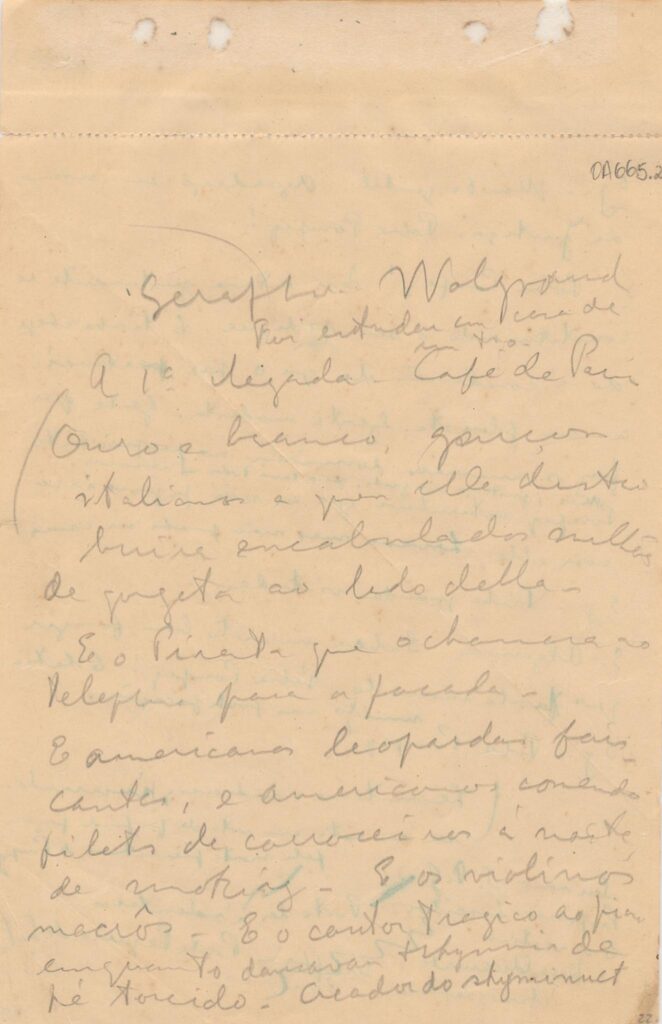 OA665.2
Serafim. Walgrand
Por entender um
A 1ª chegada - Café de Paris
Ouro e branco, garçons
italianos a quem elle distri
buira encabulados milhões
de gorgeta ao lado della -
E o Pirata que o chamara ao
telephone para a facada -
E americanas leopardas fais
cantes, e americanos comendo
filets de carroceiros á noite
de smoking - E os violinos
macrôs - E o cantor tragico ao piano
emquanto dansavam de
pé torcido - Creador do shyminuet
22